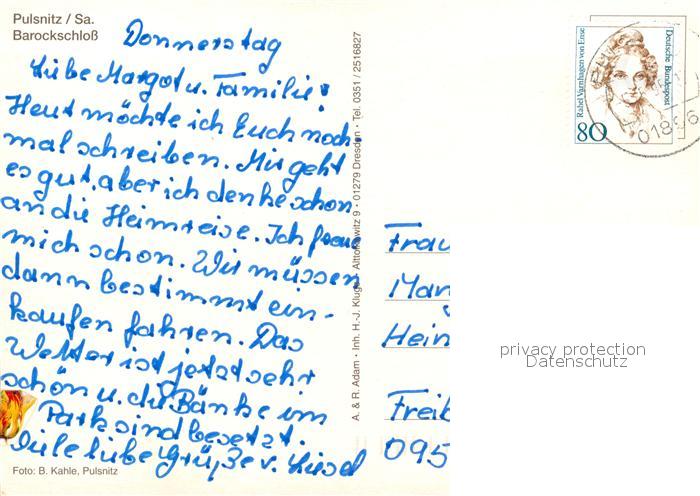 Pulsnitz / Sa.
Barockschloß
Donnerstag
Liebe Margot u. Familie!
Heut möchte ich Euch noch
mal schreiben. Mir geht
es gut, aber ich denke schon
an die Heimreise. Ich freue
mich schon. Wir müssen
dann bestimmt ein-
kaufen fahren. Das
Wetter ist jetzt sehr
schön u. die Bänke im
Park sind besetzt.
Viele liebe Grüße v. Liesel
Foto: B. Kahle, Pulsnitz
A. & R. Adam • Inh. H.-J. Kluge • Altlockwitz 9 • 01279 Dresden • Tel. 0351 / 2516827
Rahel Varnhagen von Ense
Deutsche Bundespost
80
01896
Frau
Mar
Hein
Freib
095
privacy protection
Datenschutz